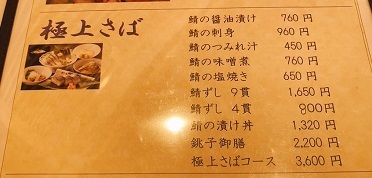 極上さば
鯖の醤油漬け 760円
鯖の刺身 960円
鯖のつみれ汁 450円
鯖の味噌煮 760円
鯖の塩焼き 650円
鯖ずし 9貫 1,650円
鯖ずし 4貫 800円
鯖の漬け丼 1,320円
銚子御膳 2,200円
極上さばコース 3,600円